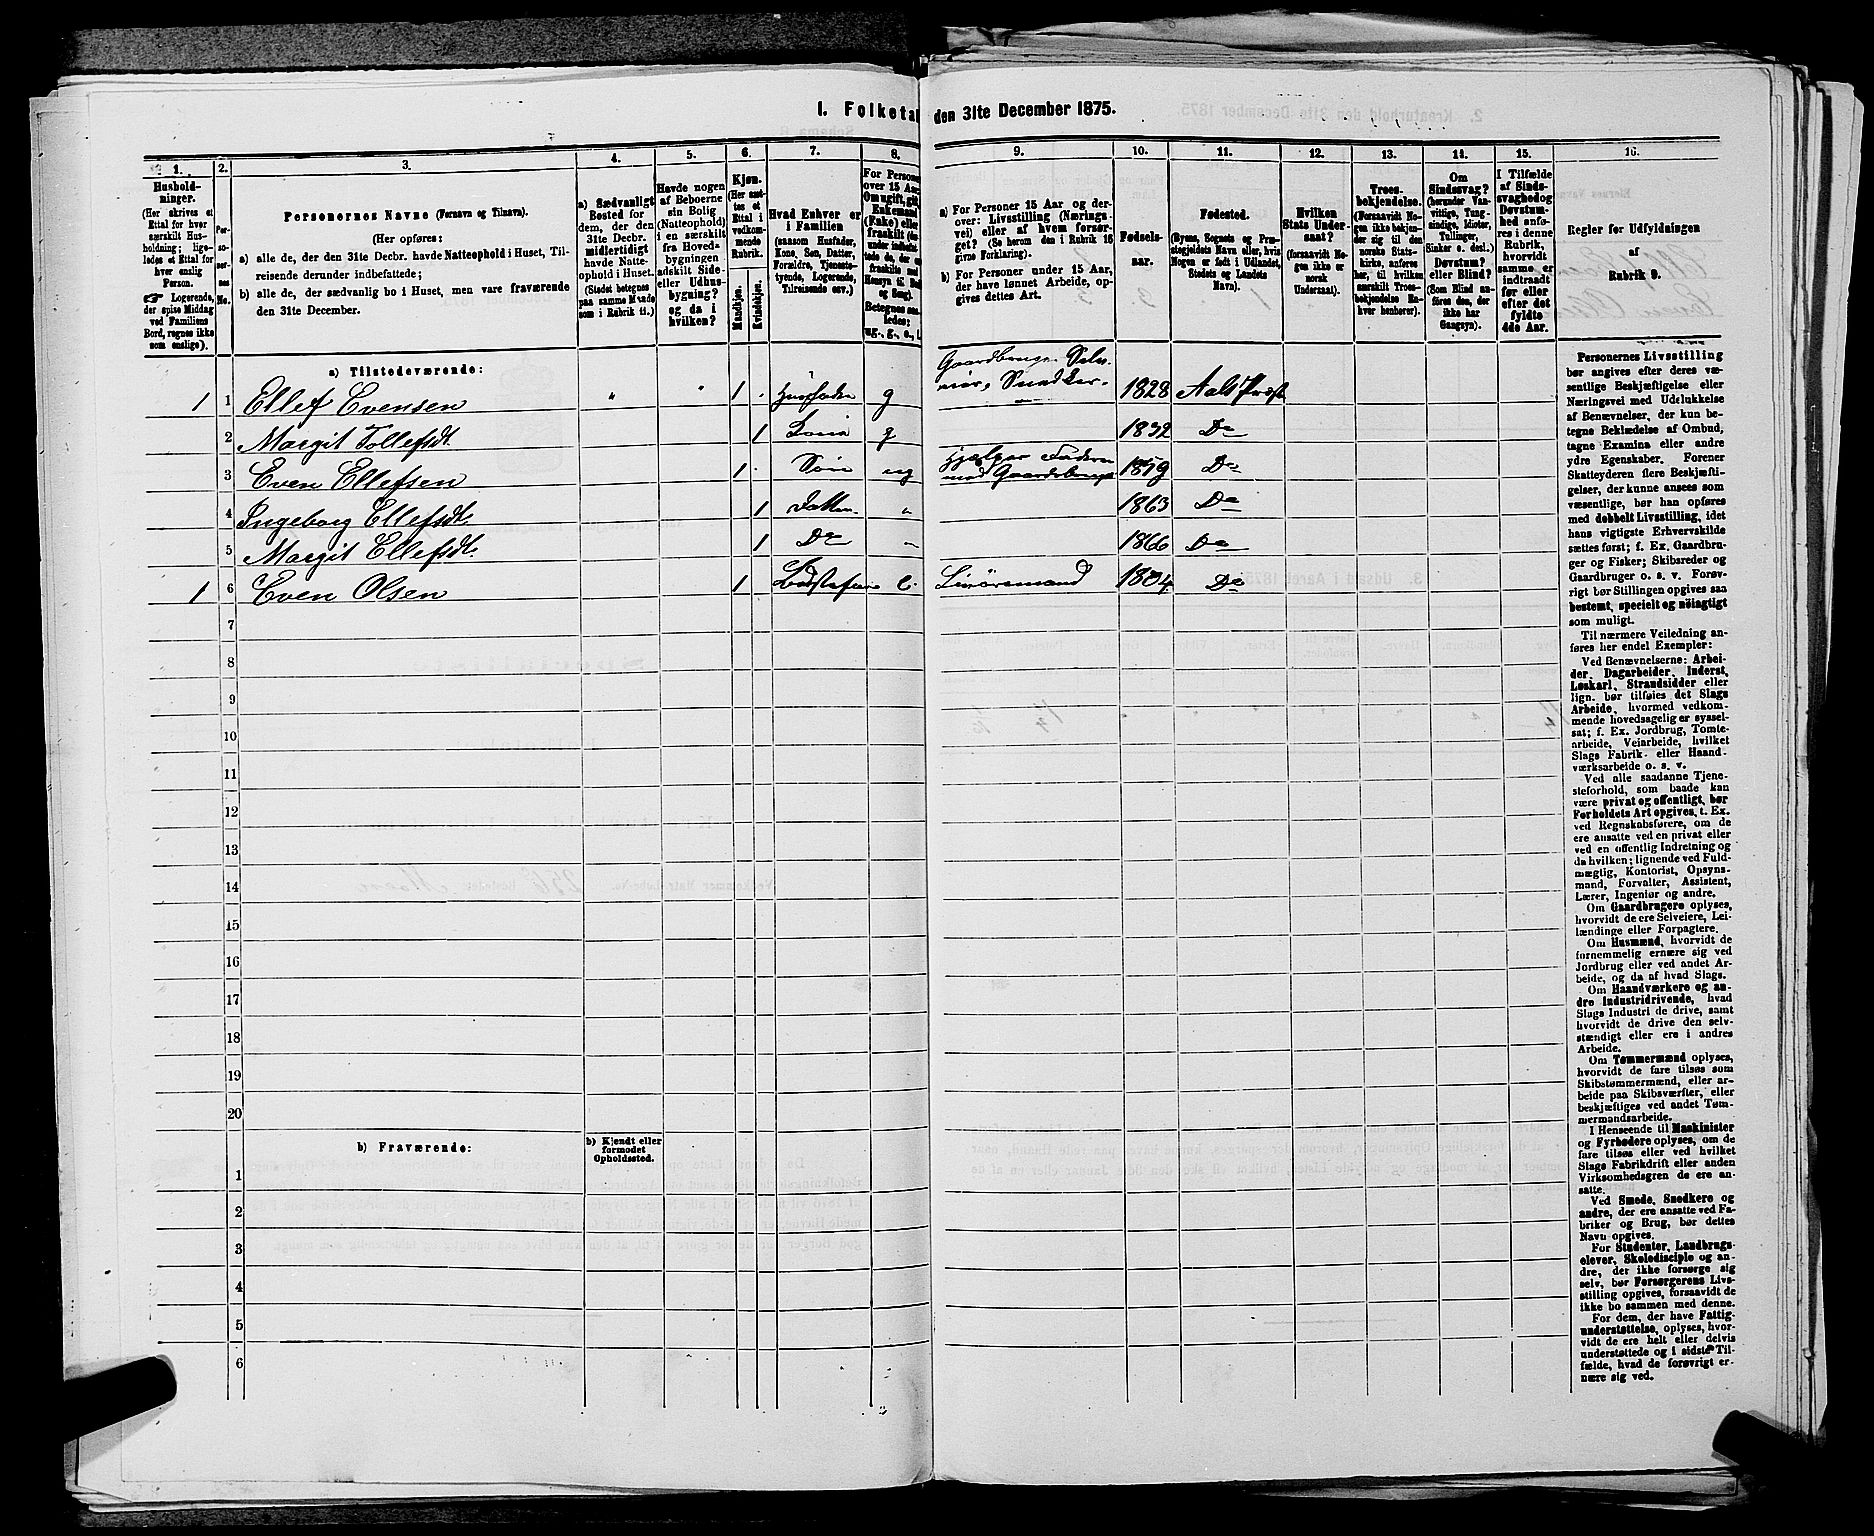 I. Folketal den 31te December 1875.
1. 2. 3. 4. 5. 6. 7. 8. 9. 10. 11. 12. 13. 14. 15. 16.
Hushold-
ninger.
(Her skrives et
Ettal for hver
særskilt Hus-
holdning; lige-
ledes et Ettal for
hver enslig
Person.
☞ Logerende,
der spise Middag
ved Familiens
Bord, regnes ikke
som enslige).
Per-
so-
ner-
nes
No.
Personernes Navne (Fornavn og Tilnavn).
(Her opføres:
a) alle de, der den 31te Decbr. havde Natteophold i Huset, Til-
reisende derunder indbefattede;
b) alle de, der sædvanlig bo i Huset, men vare fraværende
den 31te December.
a) Sædvanligt
Bosted for
dem, der den
31te Decbr.
midlertidigt
havde Natte-
ophold i Huset.
(Stedet betegnes
paa samme Maade
som i Rubrik 11.)
Havde nogen
af Beboerne
sin Bolig
(Natteophold)
i en særskilt
fra Hoved-
bygningen
adskilt Side-
eller Udhus-
bygning?
og da i
hvilken?
Kjøn.
(Her sæt-
tes et
Ettal i
vedkom-
mende
Rubrik.
Mandkjøn.
Kvindekjøn.
Hvad Enhver er
i Familien
(saasom Husfader,
Kone, Søn, Datter,
Forældre, Tjeneste-
tyende, Logerende,
Tilreisende osv.)
For Personer
over 15 Aar:
Om ugift, gift,
Enkemand
(Enke) eller
fraskilt
Betegnes saa-
ledes:
ug., g., e., f.
a) For Personer 15 Aar og der-
over: Livsstilling (Nærings-
vei) eller af hvem forsør-
get? (Se herom den i Rubrik 16
givne Forklaring).
b) For Personer under 15 Aar,
der have lønnet Arbeide, op-
gives dettes Art.
Fødsels-
aar.
Fødested.
(Byens, Sognets og Præ-
stegjeldets Navn eller, hvis
Nogen er født i Udlandet,
Stedets og Landets
Navn).
Hvilken
Stats Under-
saat?
(forsaavidt No-
gen ikke er
norsk
Undersaat).
Troes-
bekjendelse.
(Forsaavidt No-
gen ikke bekjen-
der sig til den
norske Stats-
kirke, anføres
her, til hvilken
særskilt Troes-
bekjendelse En-
hver henhører).
Om
Sindssvag?
(herunder Van-
vittige, Tung-
sindige, Idioter,
Tullinger,
Sinker o. desl.).
Døvstum?
eller Blind?
(Som Blind an-
føres den, der
ikke har
Gangsyn).
I Tilfælde
af Sinds-
svaghed og
Døvstum-
hed anfø-
res i denne
Rubrik,
hvorvidt
samme er
indtraadt
før eller
efter det
fyldte
4de Aar.
Regler for Udfyldningen
af
Rubrik 9.
a) Tilstedeværende:
1 1 Ellef Evensen " " 1 . Husfader g Gaardbruger Selv- eier, Snedker. 1828 Aals Præst
2 Margit Tollefsdt 1 Kone g 1832 Do
3 Even Ellefsen 1 . Søn ug Hjælper Faderen med Gaardsbruget 1859 Do
4 Ingeborg Ellefsdt. 1 Datter " 1863 Do
5 Margit Ellefsdt. 1 Do " 1866 Do
1 6 Even Olsen 1 e. 1804. Do
7
8
9
10
11
12
13
14
15
16
17
18
19
20
b) Fraværende:
b) Kjendt eller
formodet
Opholdssted.
1
2
3
4
5
6
Personernes Livsstilling
bør angives efter deres væ-
sentlige Beskjæftigelse eller
Næringsvei med Udelukkelse
af Benævnelser, der kun be-
tegne Beklædelse af Ombud,
tagne Examina eller andre
ydre Egenskaber. Forener
Skatteyderen flere Beskjæfti-
gelser, der kunne ansees som
væsentlige, bør han opføres
med dobbelt Livsstilling, idet
hans vigtigste Erhvervskilde
sættes først; f. Ex. Gaardbru-
ger og Fisker; Skibsreder og
Gaardbruger o. s. v. Forøv-
rigt bør Stillingen opgives saa
bestemt, specielt og nøiagtigt
som muligt.
Til nærmere Veiledning an-
føres her endel Exempler:
Ved Benævnelserne: Arbei-
der, Dagarbeider, Inderst,
Løskarl, Strandsidder eller
lign. bør tilføies det Slags
Arbeide, hvormed vedkom-
mende hovedsagelig er syssel-
sat; f. Ex. Jordbrug, Tomte-
arbeide, Veiarbeide, hvilket
Slags Fabrik- eller Haand-
værksarbeide o. s. v.
Ved alle saadanne Tjene-
steforhold, som baade kan
være privat og offentligt, bør
Forholdets Art opgives, t. Ex.
ved Regnskabsførere, om de
ere ansatte ved en privat eller
ved en offentlig Indretning og
da hvilken; lignende ved Fuld-
mægtig, Kontorist, Opsyns-
mand, Forvalter, Assistent,
Lærer, Ingeniør og andre.
Om Gaardbrugere oplyses,
hvorvidt de ere Selveiere, Lei-
lændinge eller Forpagtere.
Om Husmænd, hvorvidt de
fornemmelig ernære sig ved
Jordbrug eller ved andet Ar-
beide, og da af hvad Slags.
Om Haandværkere og an-
dre Industridrivende, hvad
Slags Industri de drive, samt
hvorvidt de drive den selv-
stændigt eller ere i andres
Arbeide.
Om Tømmermænd oplyses,
hvorvidt de fare tilsøs som
Skibstømmermænd, eller ar-
beide paa Skibsværfter, eller
beskjæftiges ved andet Tøm-
mermandsarbeide.
I Henseende til Maskinister
og Fyrbødere oplyses, om de
fare tilsøs eller ved hvilket
Slags Fabrikdrift eller anden
Virksomhedsgren de ere an-
satte.
Ved Smede, Snedkere og
andre, der ere ansatte ved Fa-
briker og Brug, bør dettes
Navn opgives.
For Studenter, Landbrugs-
elever, Skoledisciple og an-
dre, der ikke forsørge sig
selv, bør Forsørgerens Livs-
stilling opgives, forsaavidt de
ikke bo sammen med denne.
For dem, der have Fattig-
understøttelse, oplyses, hvor-
vidt de ere helt eller delvis
understøttede og i sidste Til-
fælde, hvad de forøvrigt er-
nære sig ved.